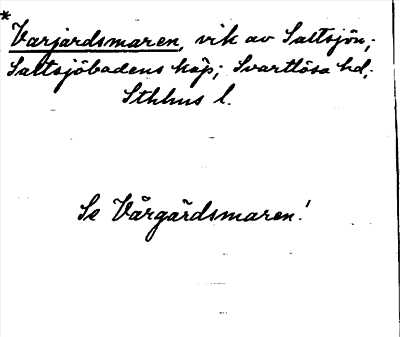 *
Varjardsmaren, vik av Saltsjön,;
Saltsjöbadens köp; Svartlösa hd;
Sthlms l.
Se Vårgårdsmaren!